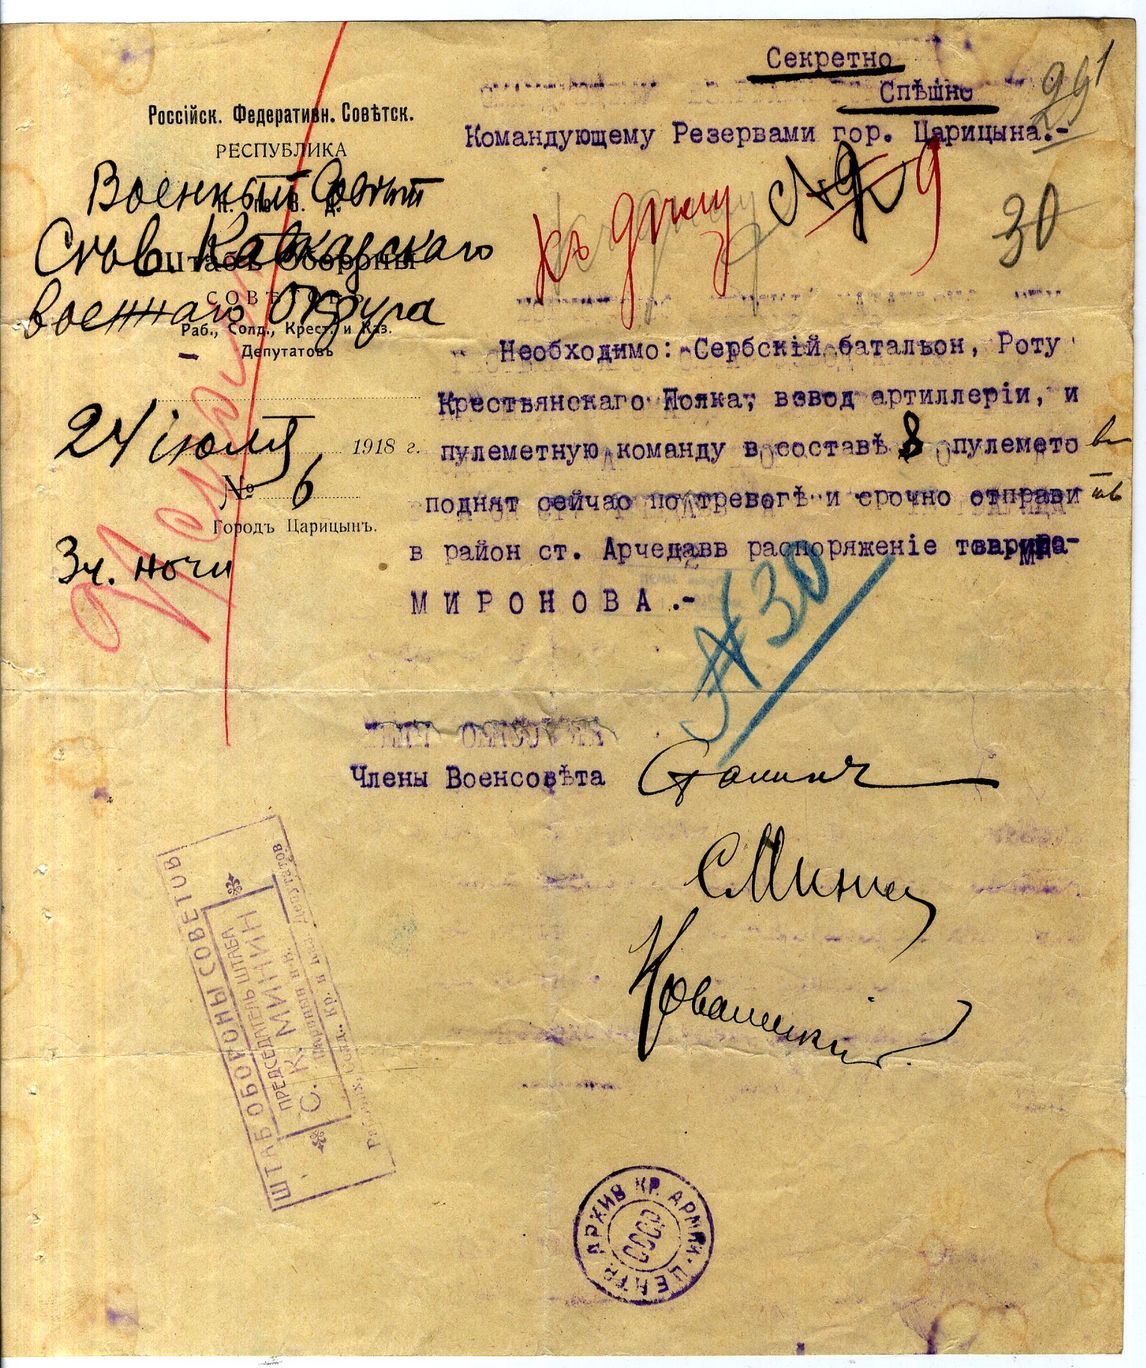 Секретно
Спѣшно
291
Россійск. Федеративн. Совѣтск.
РЕСПУБЛИКА
Командующему Резервами гор. Царицына.-
Военный Совѣт
Сѣв. Кавказскаго
военнаго Округа
Штабъ Обороны
СОВѢТ
Раб., Солд., Крест. и Каз.
Депутатовъ
Къ дѣлу
№ 9
30
Необходимо: Сербскій батальон, Роту
Крестьянскаго Полка, взвод артиллеріи, и
пулеметную команду в составѣ 8 пулеметов
поднят сейчас по тревогѣ и срочно отправить
в район ст. Арчеда в распоряжение товарища
МИРОНОВА.-
24 іюля 1918 г.
№ 6
Городъ Царицынъ.
3 ч. ночи
№ 30
Члены Военсовѣта
Сталин
С Минин
Ковалевскій
ШТАБ ОБОРОНЫ СОВЕТОВ
ПРЕДСЕДАТЕЛЬ ШТАБА
С. К. МИНИН
Рабочих, Солд., Кр. и Каз. Депутатов
ЦЕНТР. АРХИВ КР. АРМИИ
СССР